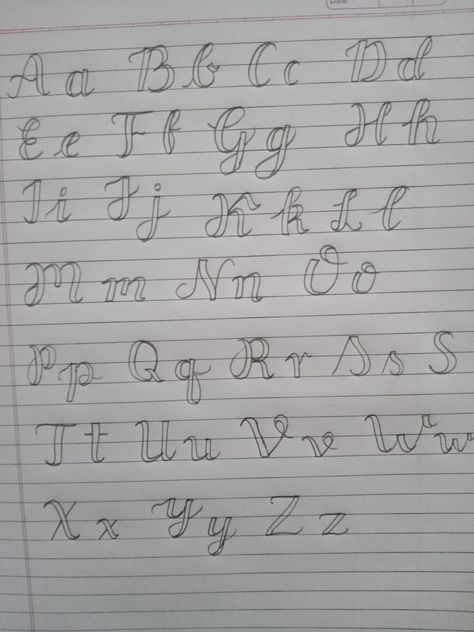 A a B b C c D d
E e F f G g H h
I i J j K k L l
M m N n O o
P p Q q R r S s S
T t U u V v W w
X x Y y Z z